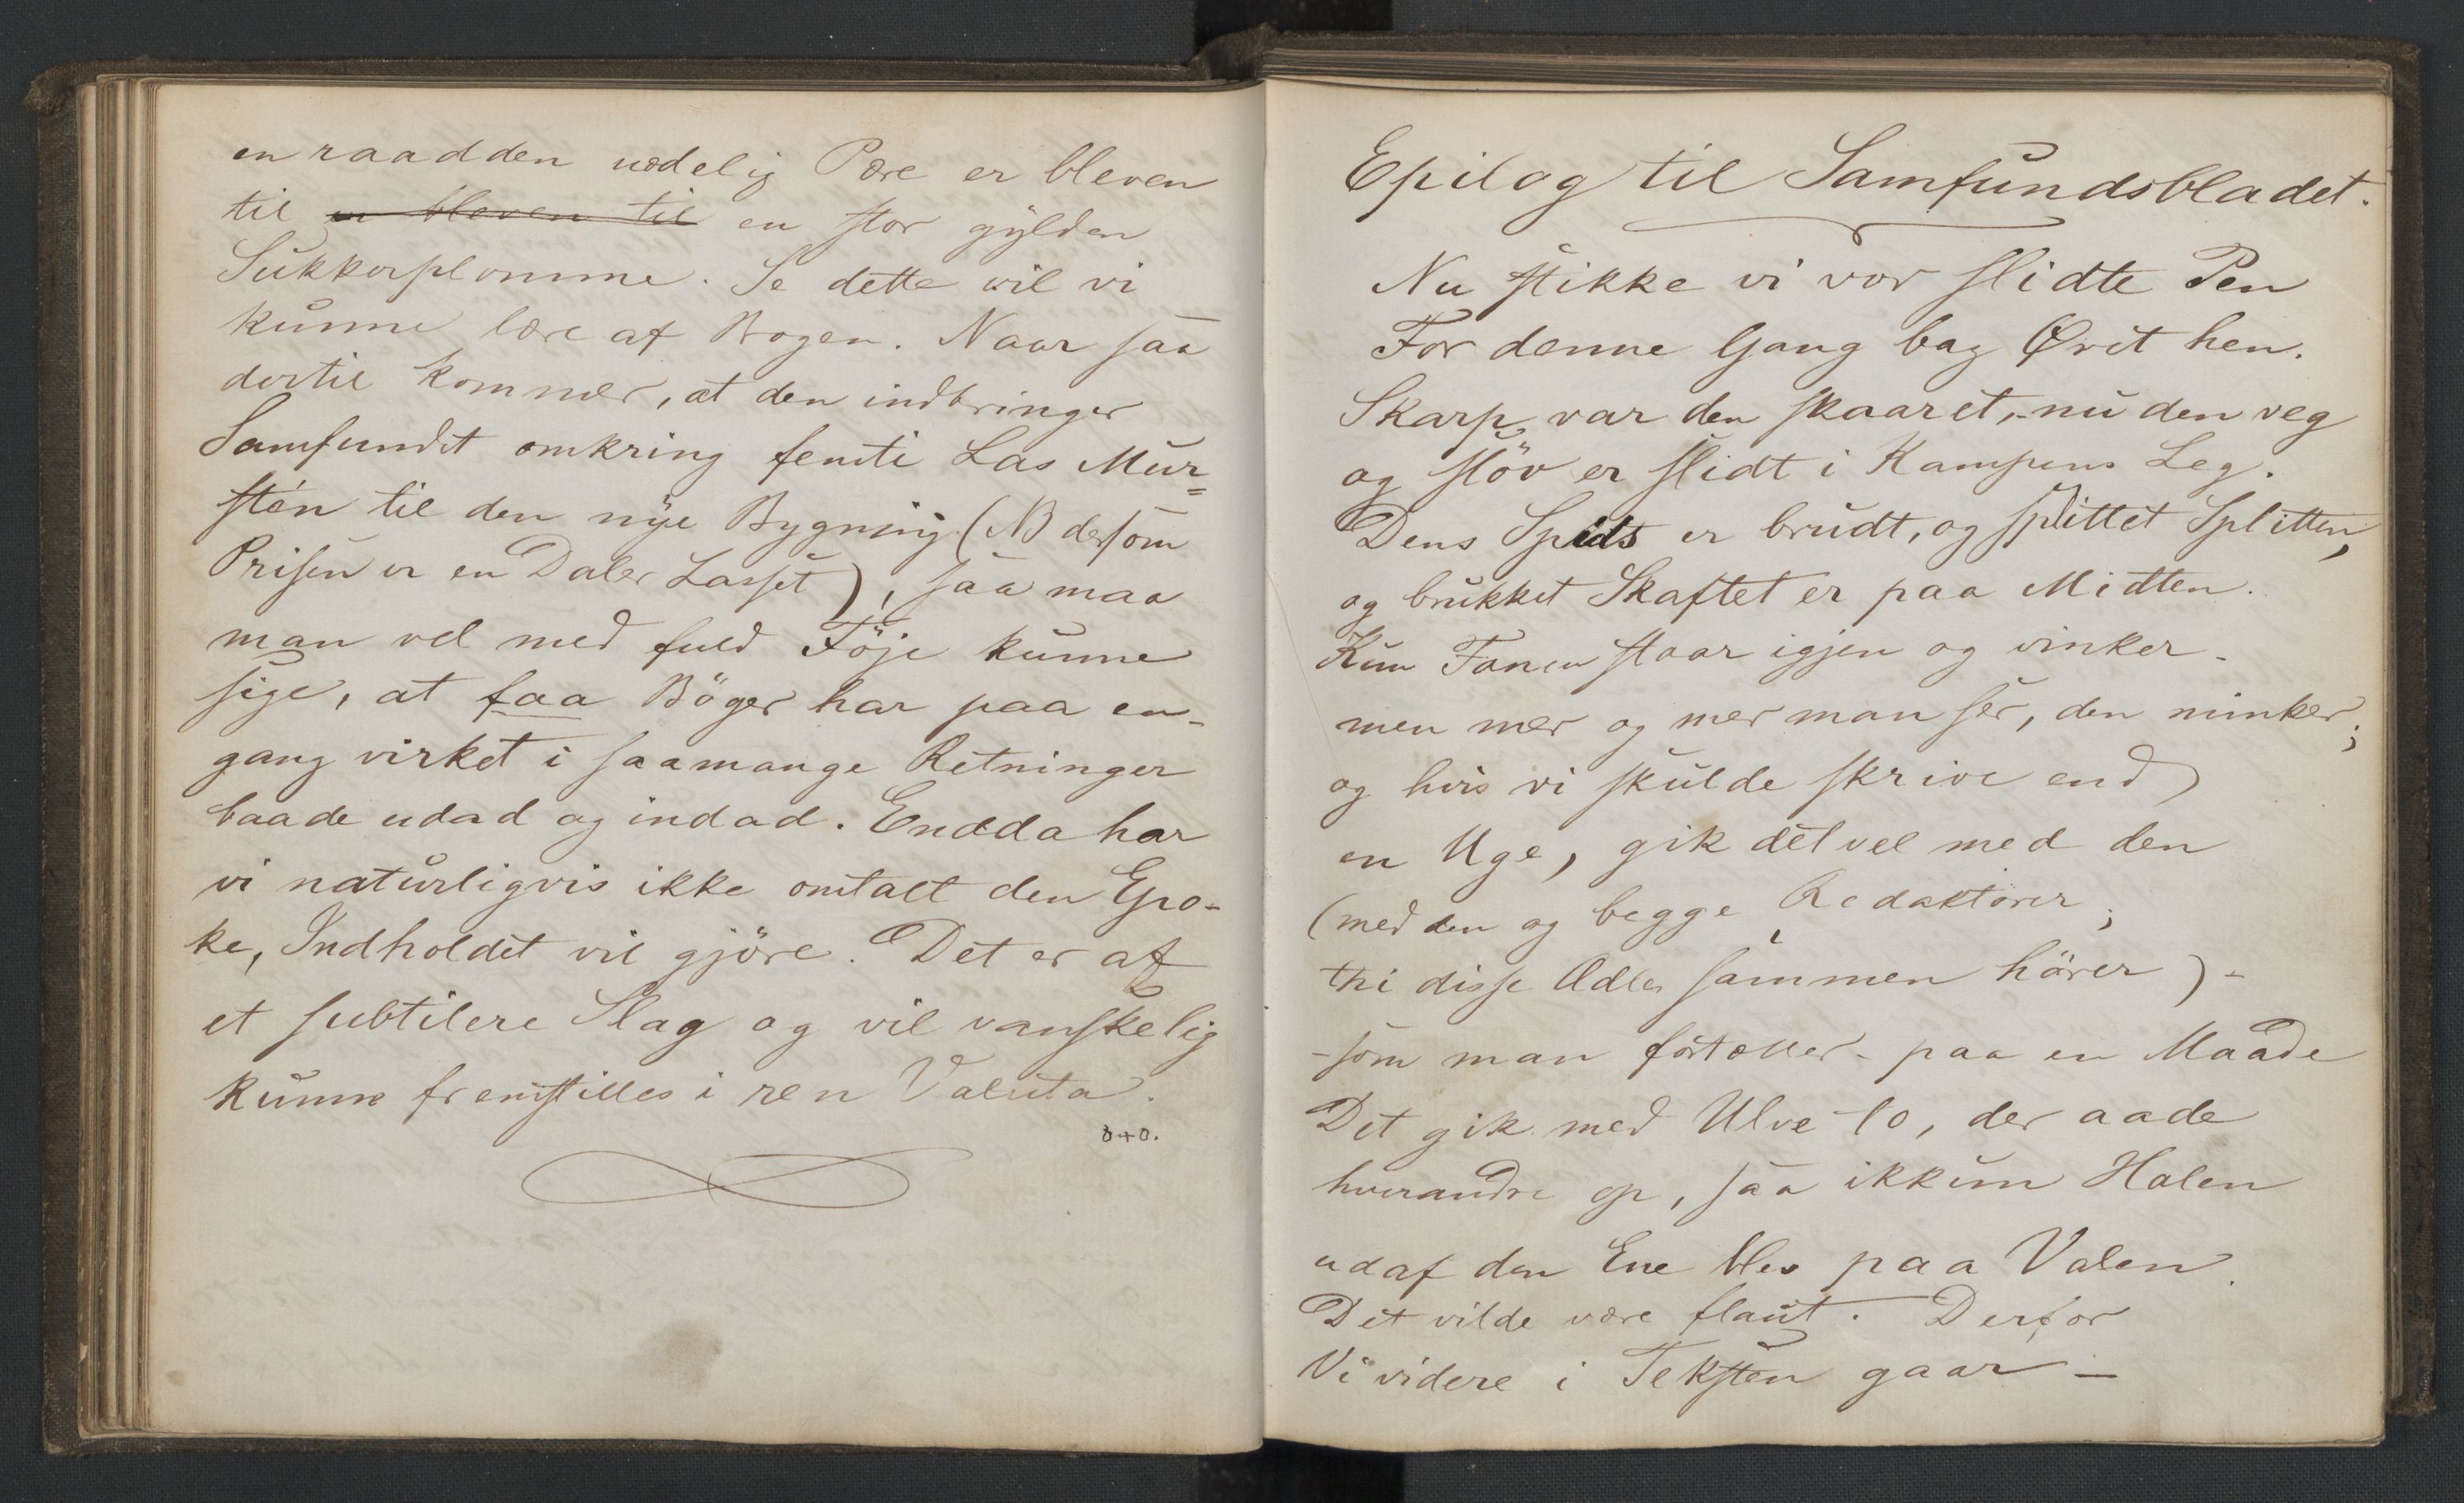 en raadden uædelig Pære er bleven
til er bleven til en stor gylden
Sukkerplomme. Se dette vil vi
kunne lære af Bogen. Naar saa
dertil kommer, at den indbringer
Samfundet omkring femti Las Mur=
sten til den nye Bygning (NB dersom
Prisen er en Daler Lasset), saa maa
man vel med fuld Föje kunne
sige, at faa Böger har paa en-
gang virket i saamange Retninger
baade udad og indad. Endda har
vi naturligvis ikke omtalt den Epo-
ke, Indholdet vil gjöre. Det er af
et subtilere Slag og vil vanskelig
kunne fremstilles i ren Valuta.
8+0.
Epilog til Samfundsbladet.
Nu stikke vi vor slidte Pen
For denne Gang bag Øret hen.
Skarp var den skaaret, - nu den veg
og slöv er slidt i Kampens Leg.
Dens Spids er brudt, og splittet Splitten,
og brukket Skaftet er paa Midten.
Kun Fanen staar igjen og vinker -
men mer og mer man ser, den minker;
og hvis vi skulde skrive end
en Uge, gik det vel med den
(med den og begge Redaktörer;
thi disse Adler sammen hörer) -
- som man fortæller - paa en Maade
Det gik med Ulve to, der aade
hverandre op, saa ikkun Halen
udaf den Ene blev paa Valen.
Det vilde være flaut. Derfor
Vi videre i Teksten gaar —